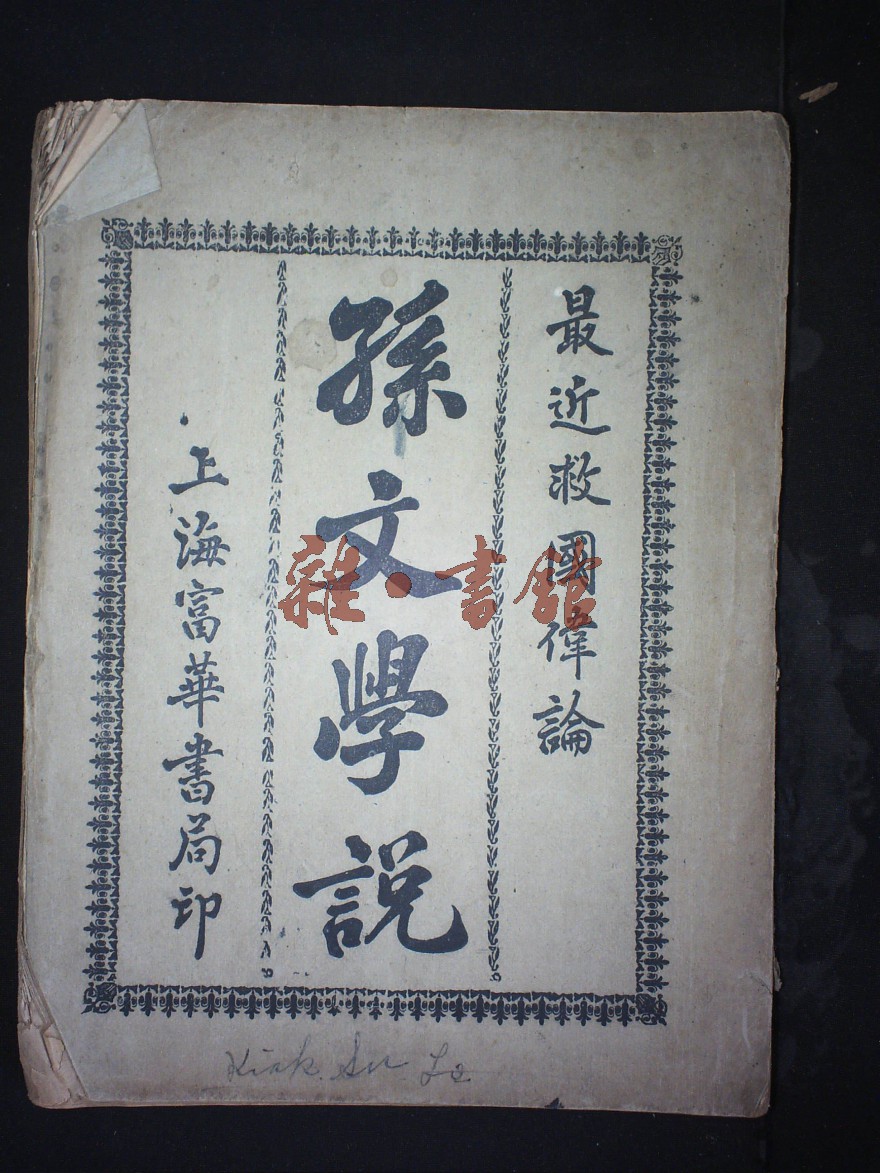 最近救國偉論
孫文學説
上海富華書局印
雜·書館
Kiok Su Lo